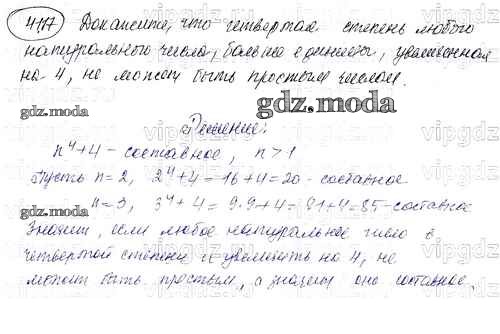 417 Докажите, что четвертая степень любого
натурального числа, больше единицы, увеличенная
на 4, не может быть простым числом.
gdz.moda
gdz.moda
Решение:
n⁴+4 – составное, n>1
Пусть n=2, 2⁴+4=16+4=20 - составное
n=3, 3⁴+4=9·9+4=81+4=85-составное
gdz.moda
Значит, если любое натуральное число в
четвертой степени и увеличить на 4, не
может быть простым, а значит оно составное.